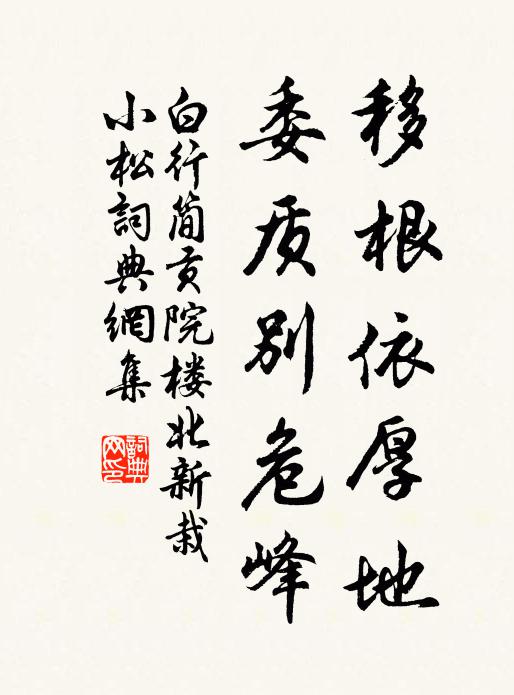 移根依厚地
委质别危峰
白行简贡院楼北新栽
小松詞典網集
詞典网印